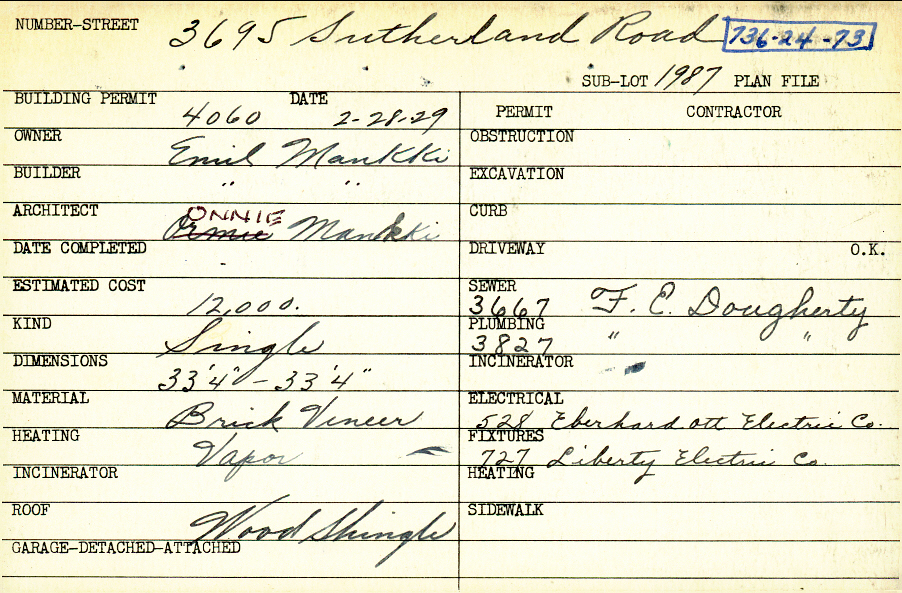 NUMBER-STREET 3695 Sutherland Road 736-24-73
SUB-LOT 1987 PLAN FILE
BUILDING PERMIT 4060 DATE 2-28-29
OWNER Emil Mankki
BUILDER " "
ARCHITECT ONNIE Ormie Mankki
DATE COMPLETED
ESTIMATED COST 12,000.
KIND Single
DIMENSIONS 33'4" - 33'4"
MATERIAL Brick Veneer
HEATING Vapor
INCINERATOR
ROOF Wood Shingle
GARAGE-DETACHED-ATTACHED
PERMIT CONTRACTOR
OBSTRUCTION
EXCAVATION
CURB
DRIVEWAY O.K.
SEWER 3667 F. E. Dougherty
PLUMBING 3827 " "
INCINERATOR
ELECTRICAL 528 Eberhard Ott Electric Co.
FIXTURES 727 Liberty Electric Co.
HEATING
SIDEWALK